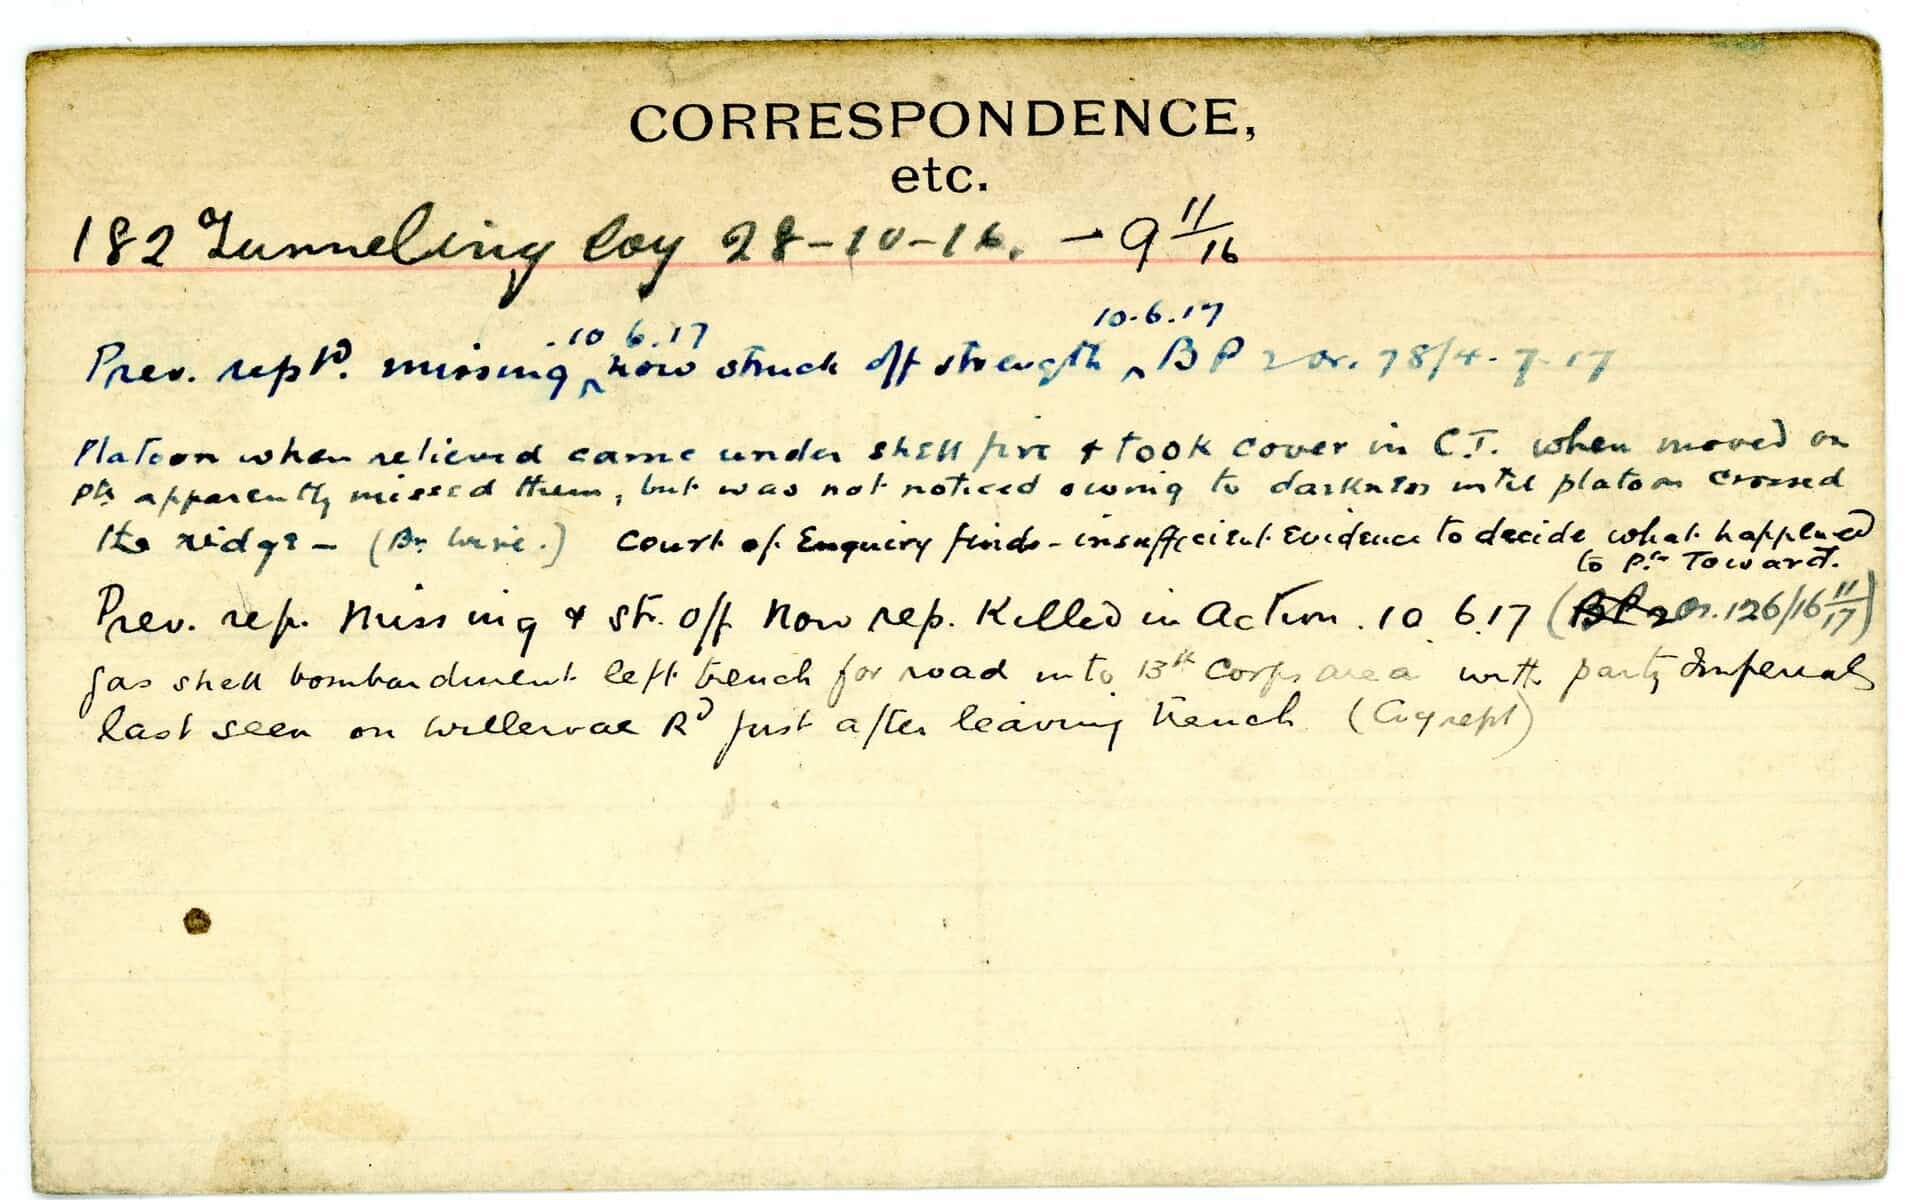 CORRESPONDENCE,
etc.
182 Tunneling Coy 28-10-16. - 9 11/16
10 6.17 10.6.17
Prev. reptd. missing ^ now struck off strength ^ BP 2 or. 78/4-7-17
Platoon when relieved came under shell fire & took cover in C.T. when moved on
Pte apparently missed them, but was not noticed owing to darkness until platoon crossed
the ridge - (Bn Wire.) Court of Enquiry finds - insufficient Evidence to decide what happened
to Pte Toward.
Prev. rep. Missing & str. off Now rep. Killed in Action. 10 6.17 (BP2 Or. 126/16 11/17)
gas shell bombardment left trench for road into 13th Corps area with party Imperials
last seen on Willerval Rd just after leaving trench (Coy rept)